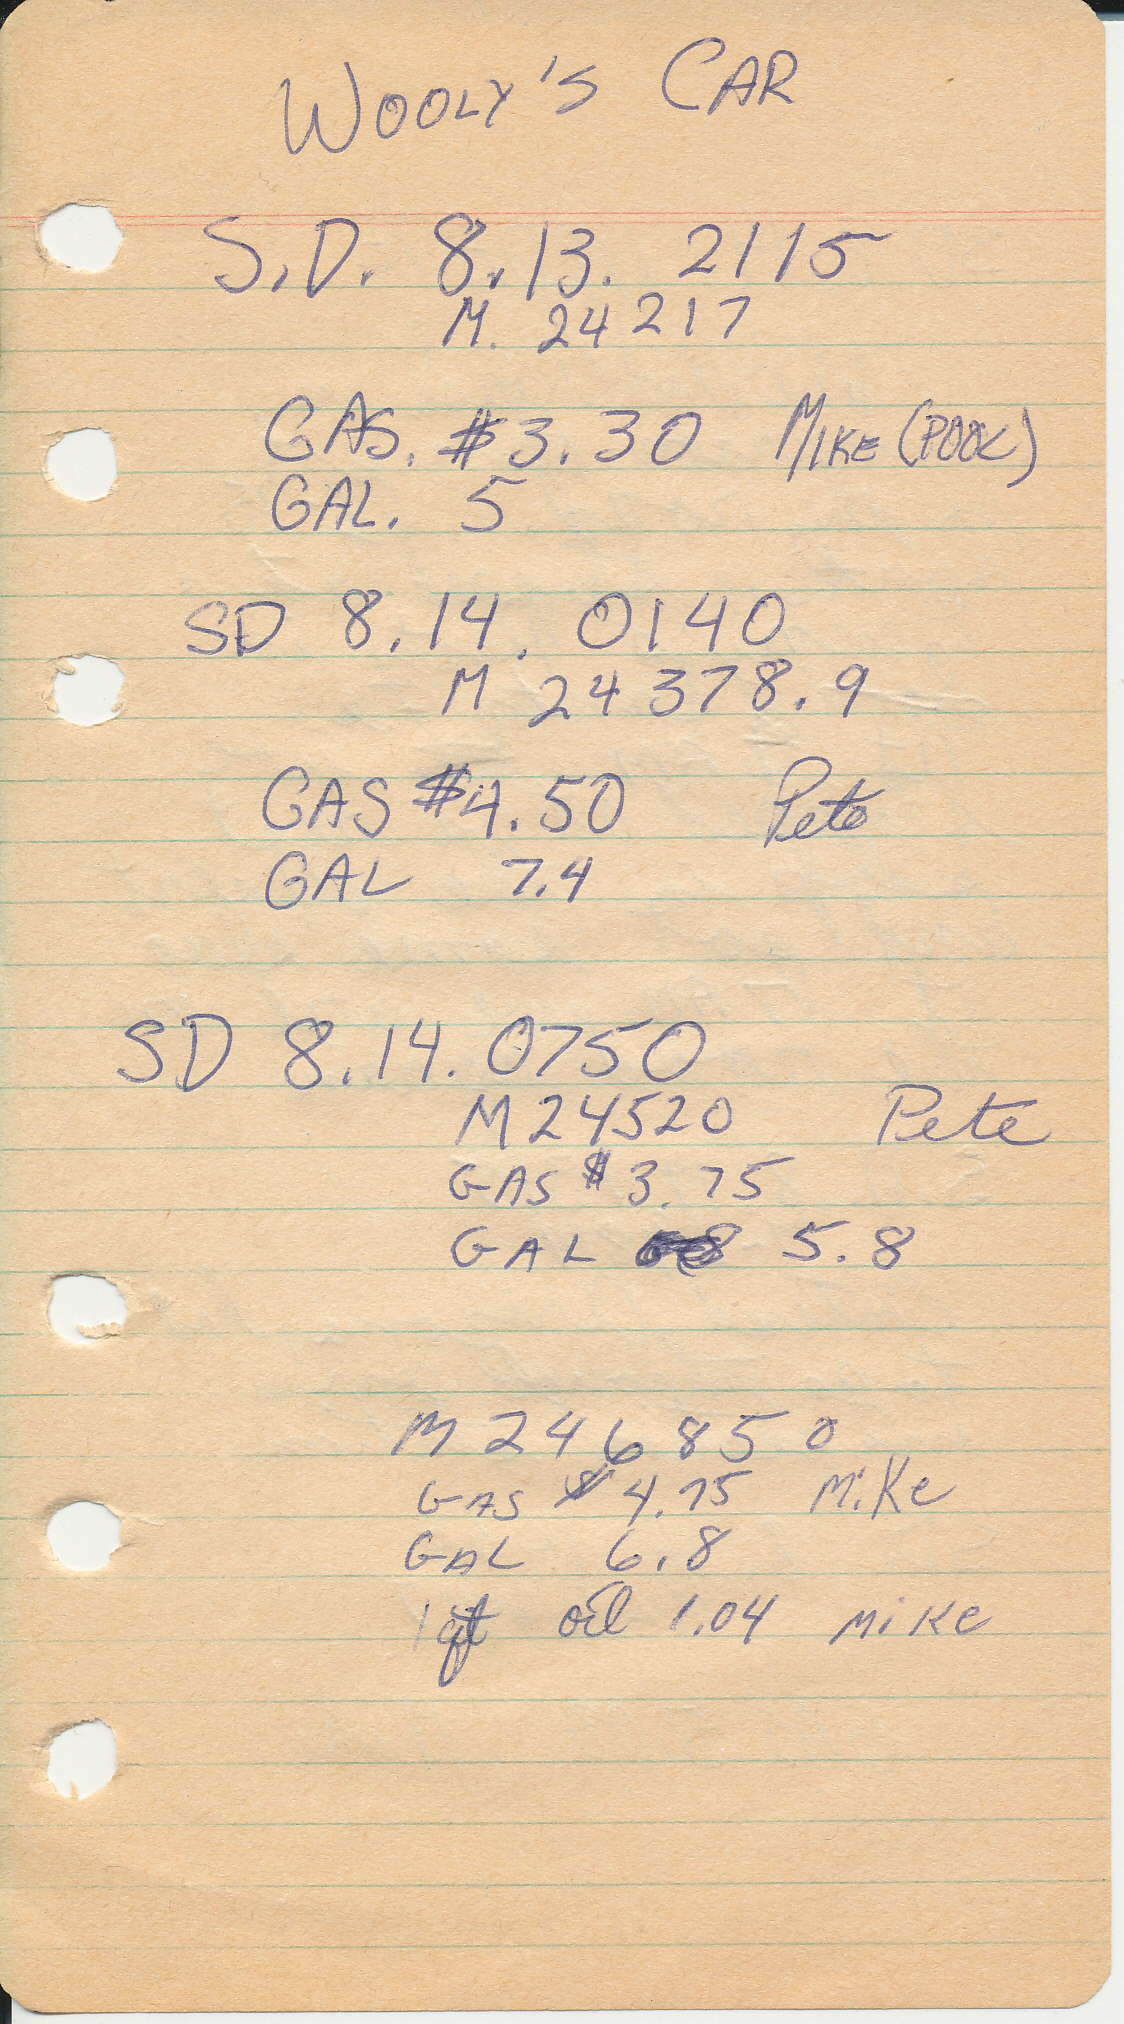 WOOLY'S CAR
S.D. 8.13. 2115
M. 24217
GAS. $3.30 MIKE (POOL)
GAL. 5
SD 8.14. 0140
M 24378.9
GAS $4.50 Pete
GAL 7.4
SD 8.14. 0750
M 24520 Pete
GAS $3.75
GAL 5.8
M 246850
GAS $4.75 MiKe
GAL 6.8
1 qt oil 1.04 MiKe